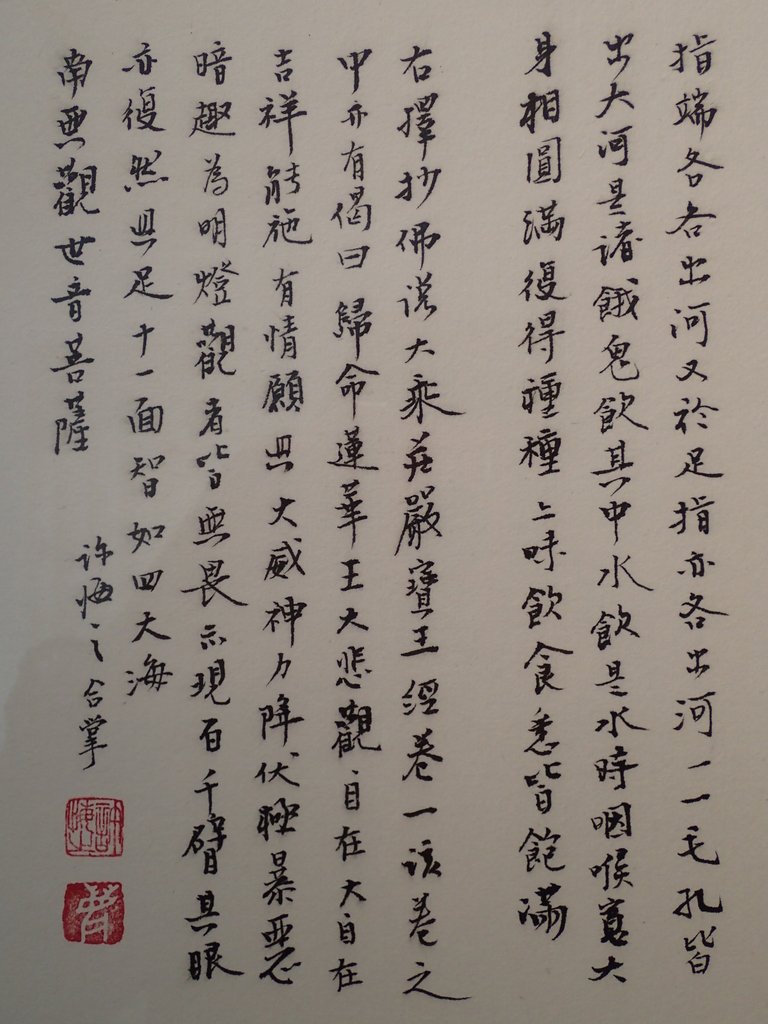 指端各各出河又於足指亦各出河一一毛孔皆
出大河是諸餓鬼飲其中水飲是水時咽喉寬大
身相圓滿復得種種上味飲食悉皆飽滿
右擇抄佛說大乘莊嚴寶王經卷一該卷之
中亦有偈曰歸命蓮華王大悲觀自在大自在
吉祥能施有情願具大威神力降伏極暴惡
暗趣為明燈觀者皆無畏示現百千臂其眼
亦復然具足十一面智如四大海
南無觀世音菩薩
許悔之合掌
許悔